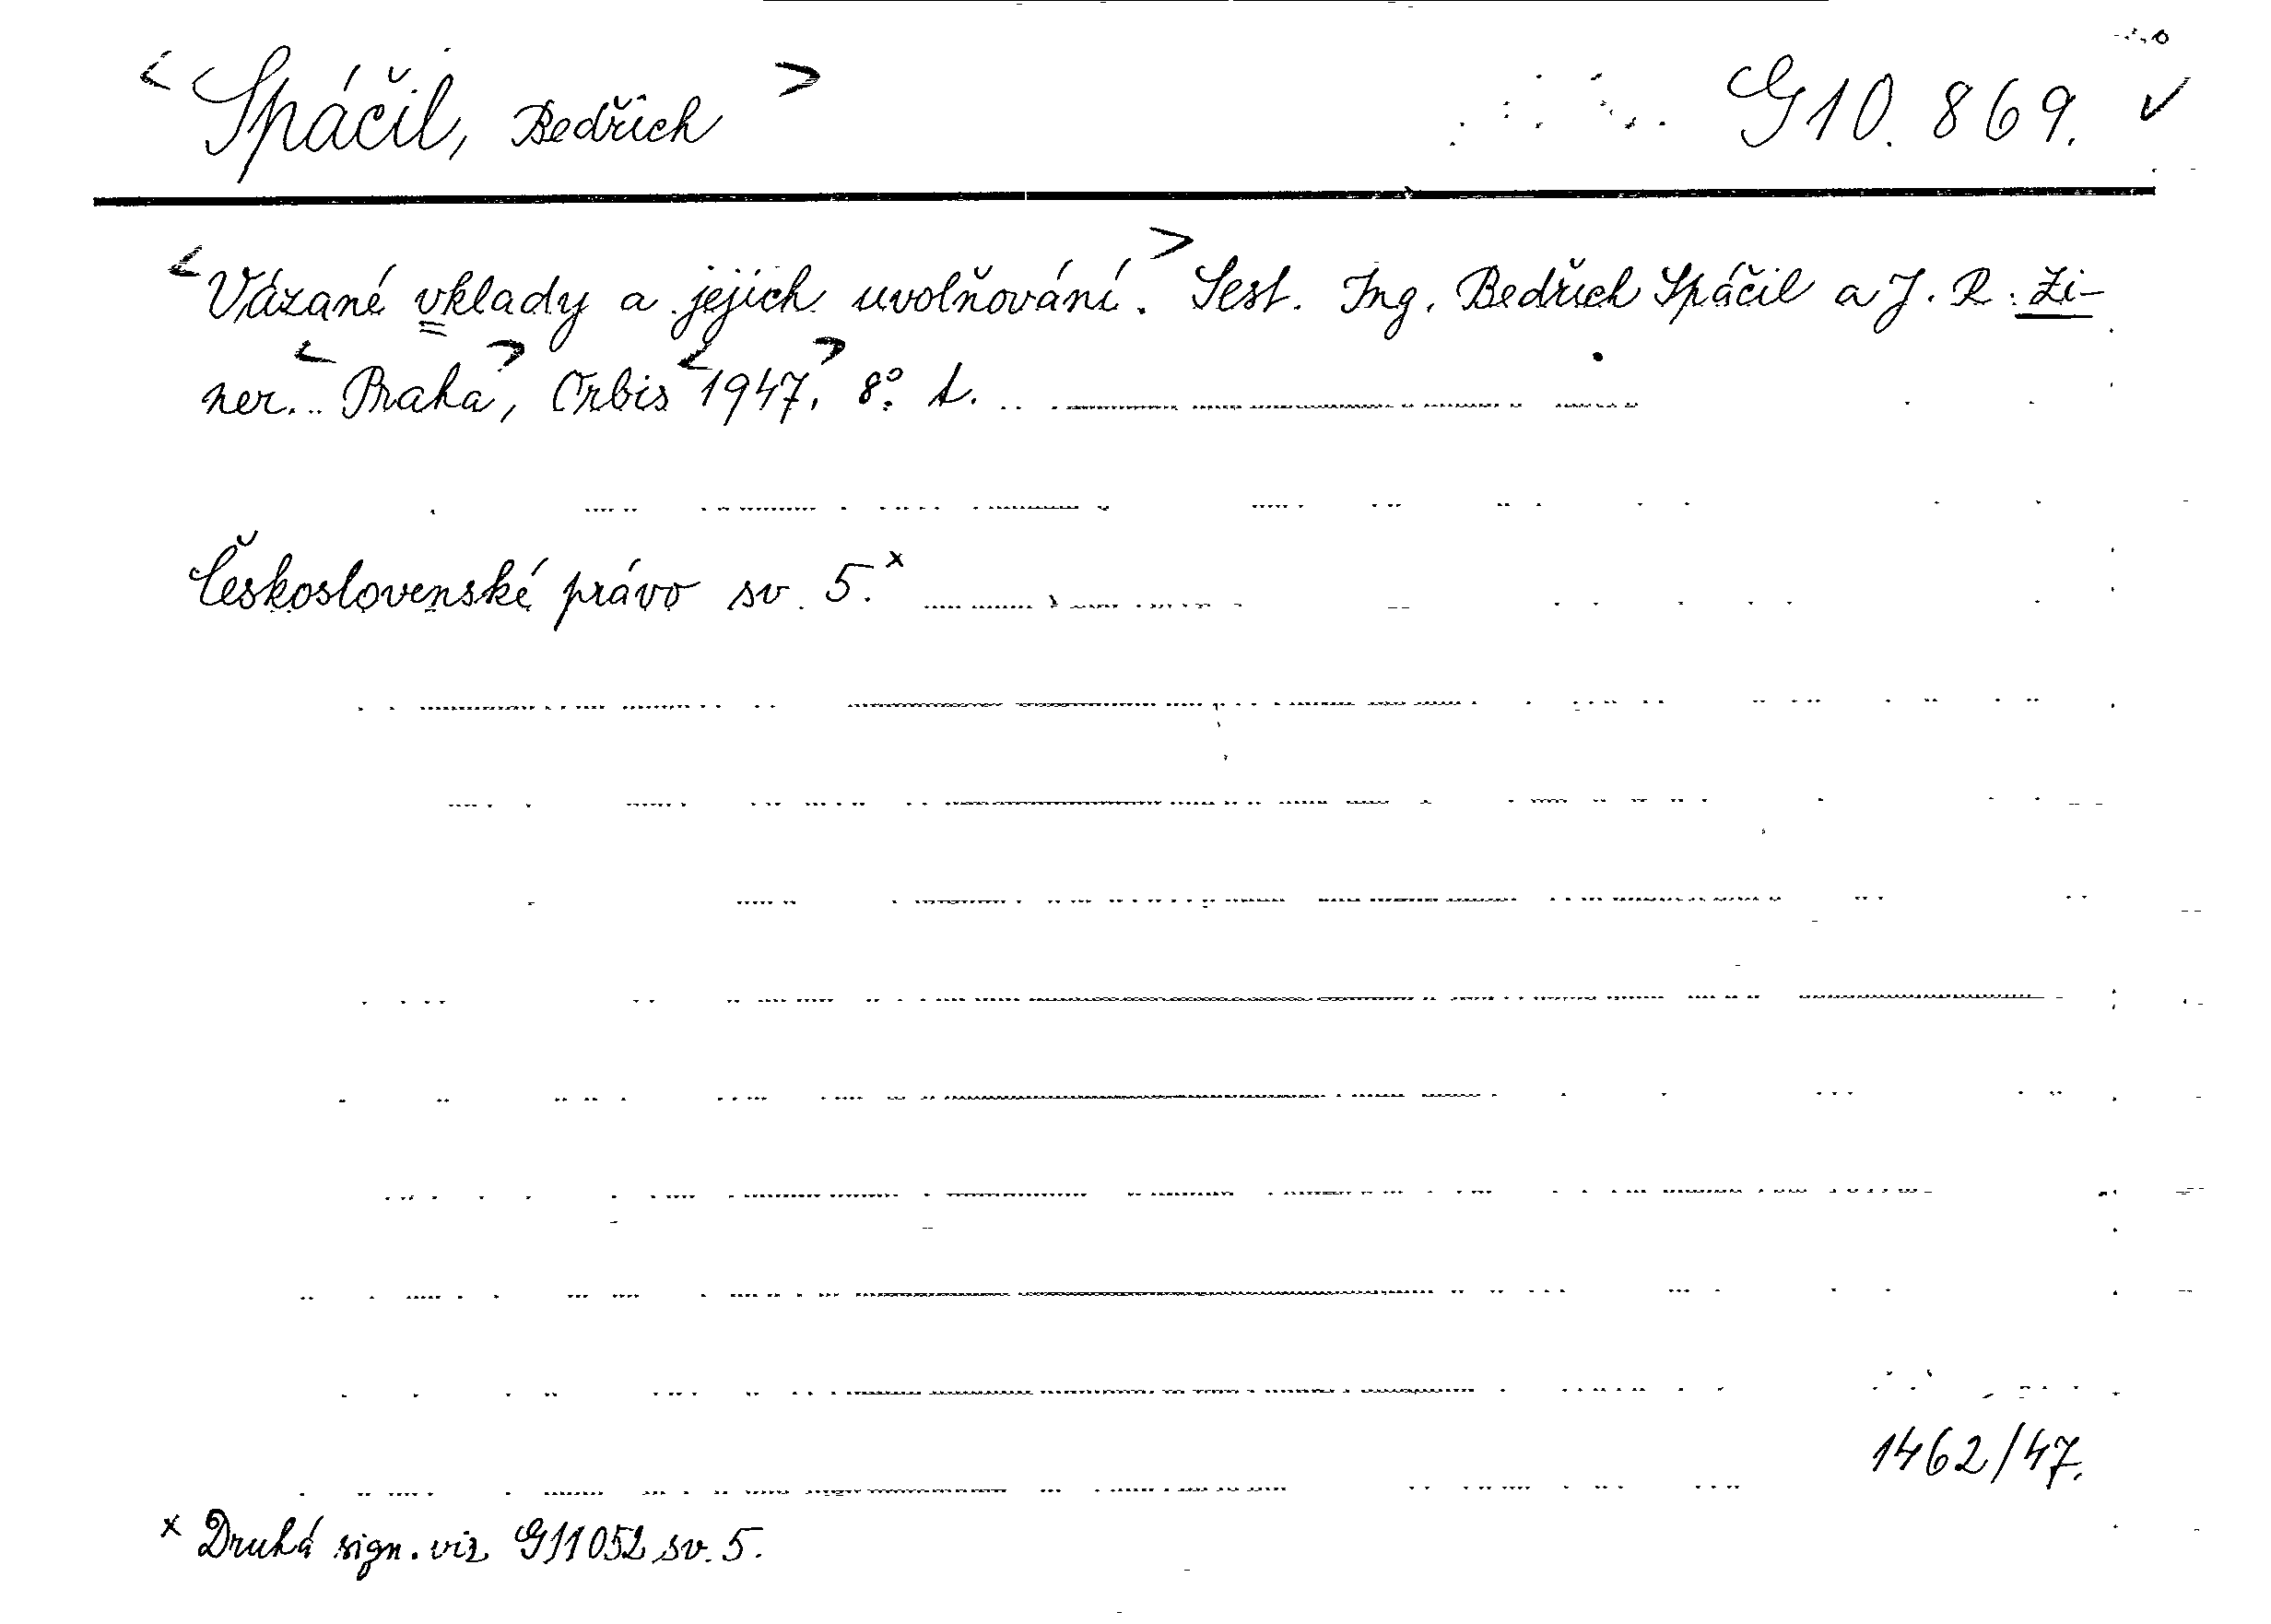 < Spáčil, Bedřich > G 10.869. ✓
< Vázané vklady a jejich uvolňování. > Sest. Ing. Bedřich Spáčil a J. R. Ži-
ner. .. < Praha >, Orbis < 1947. > 8°. t.
Československé právo sv. 5. x
1462/47.
x Druhá sign. viz G 11052 sv. 5.